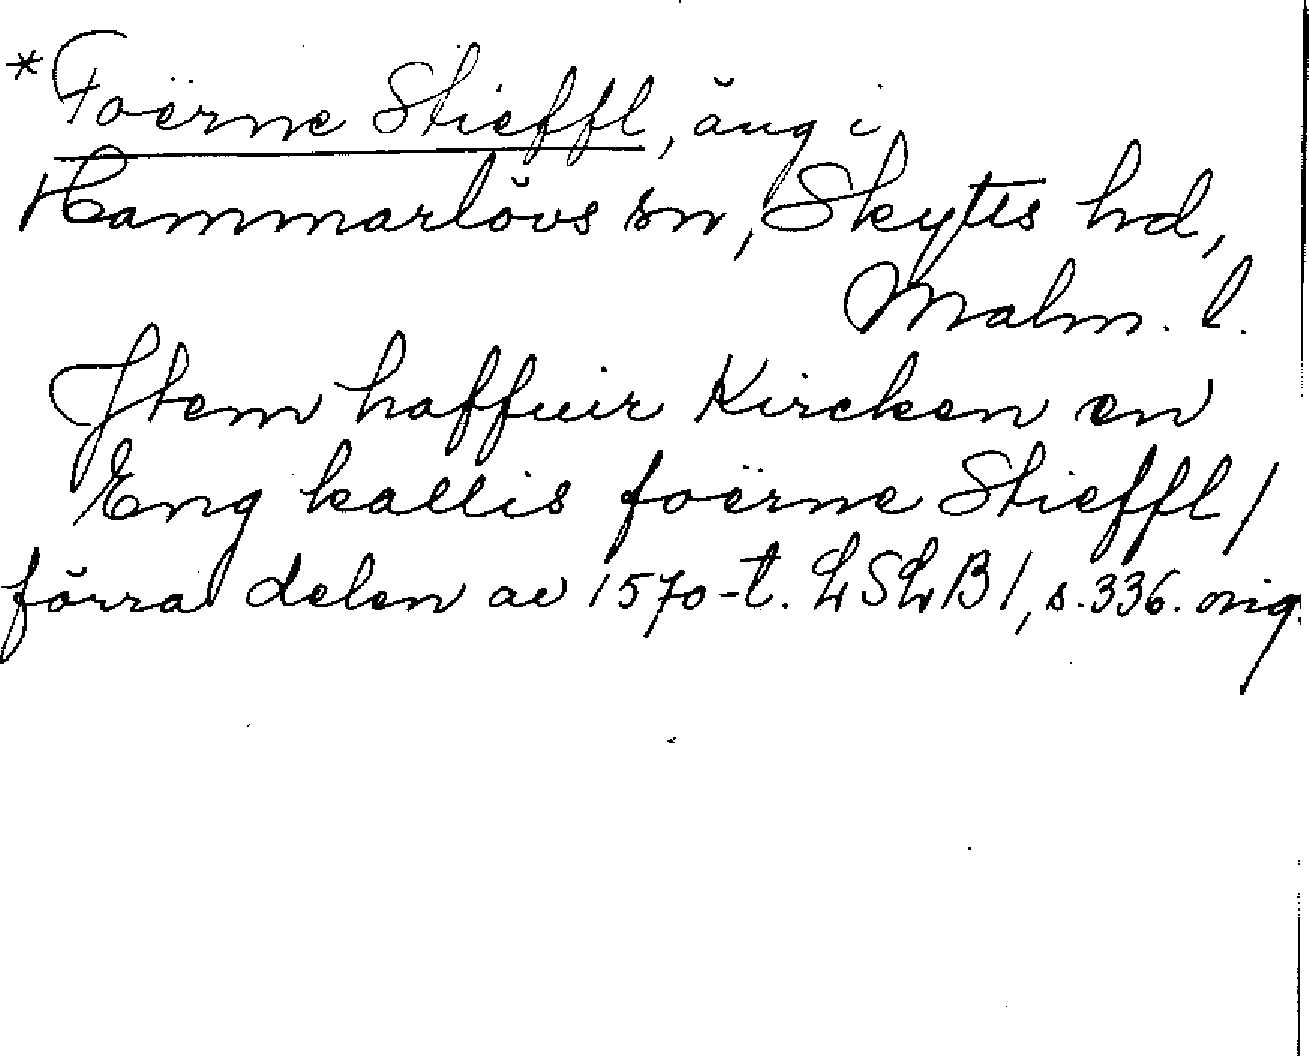 *Foërne Stieffl, äng i
Hammarlövs sn, Skytts hd,
Malm. l.
Jtem haffuir Kircken en
Eng kallis foërne Stieffl /
förra delen av 1570-t. LSLB 1, s. 336. orig.